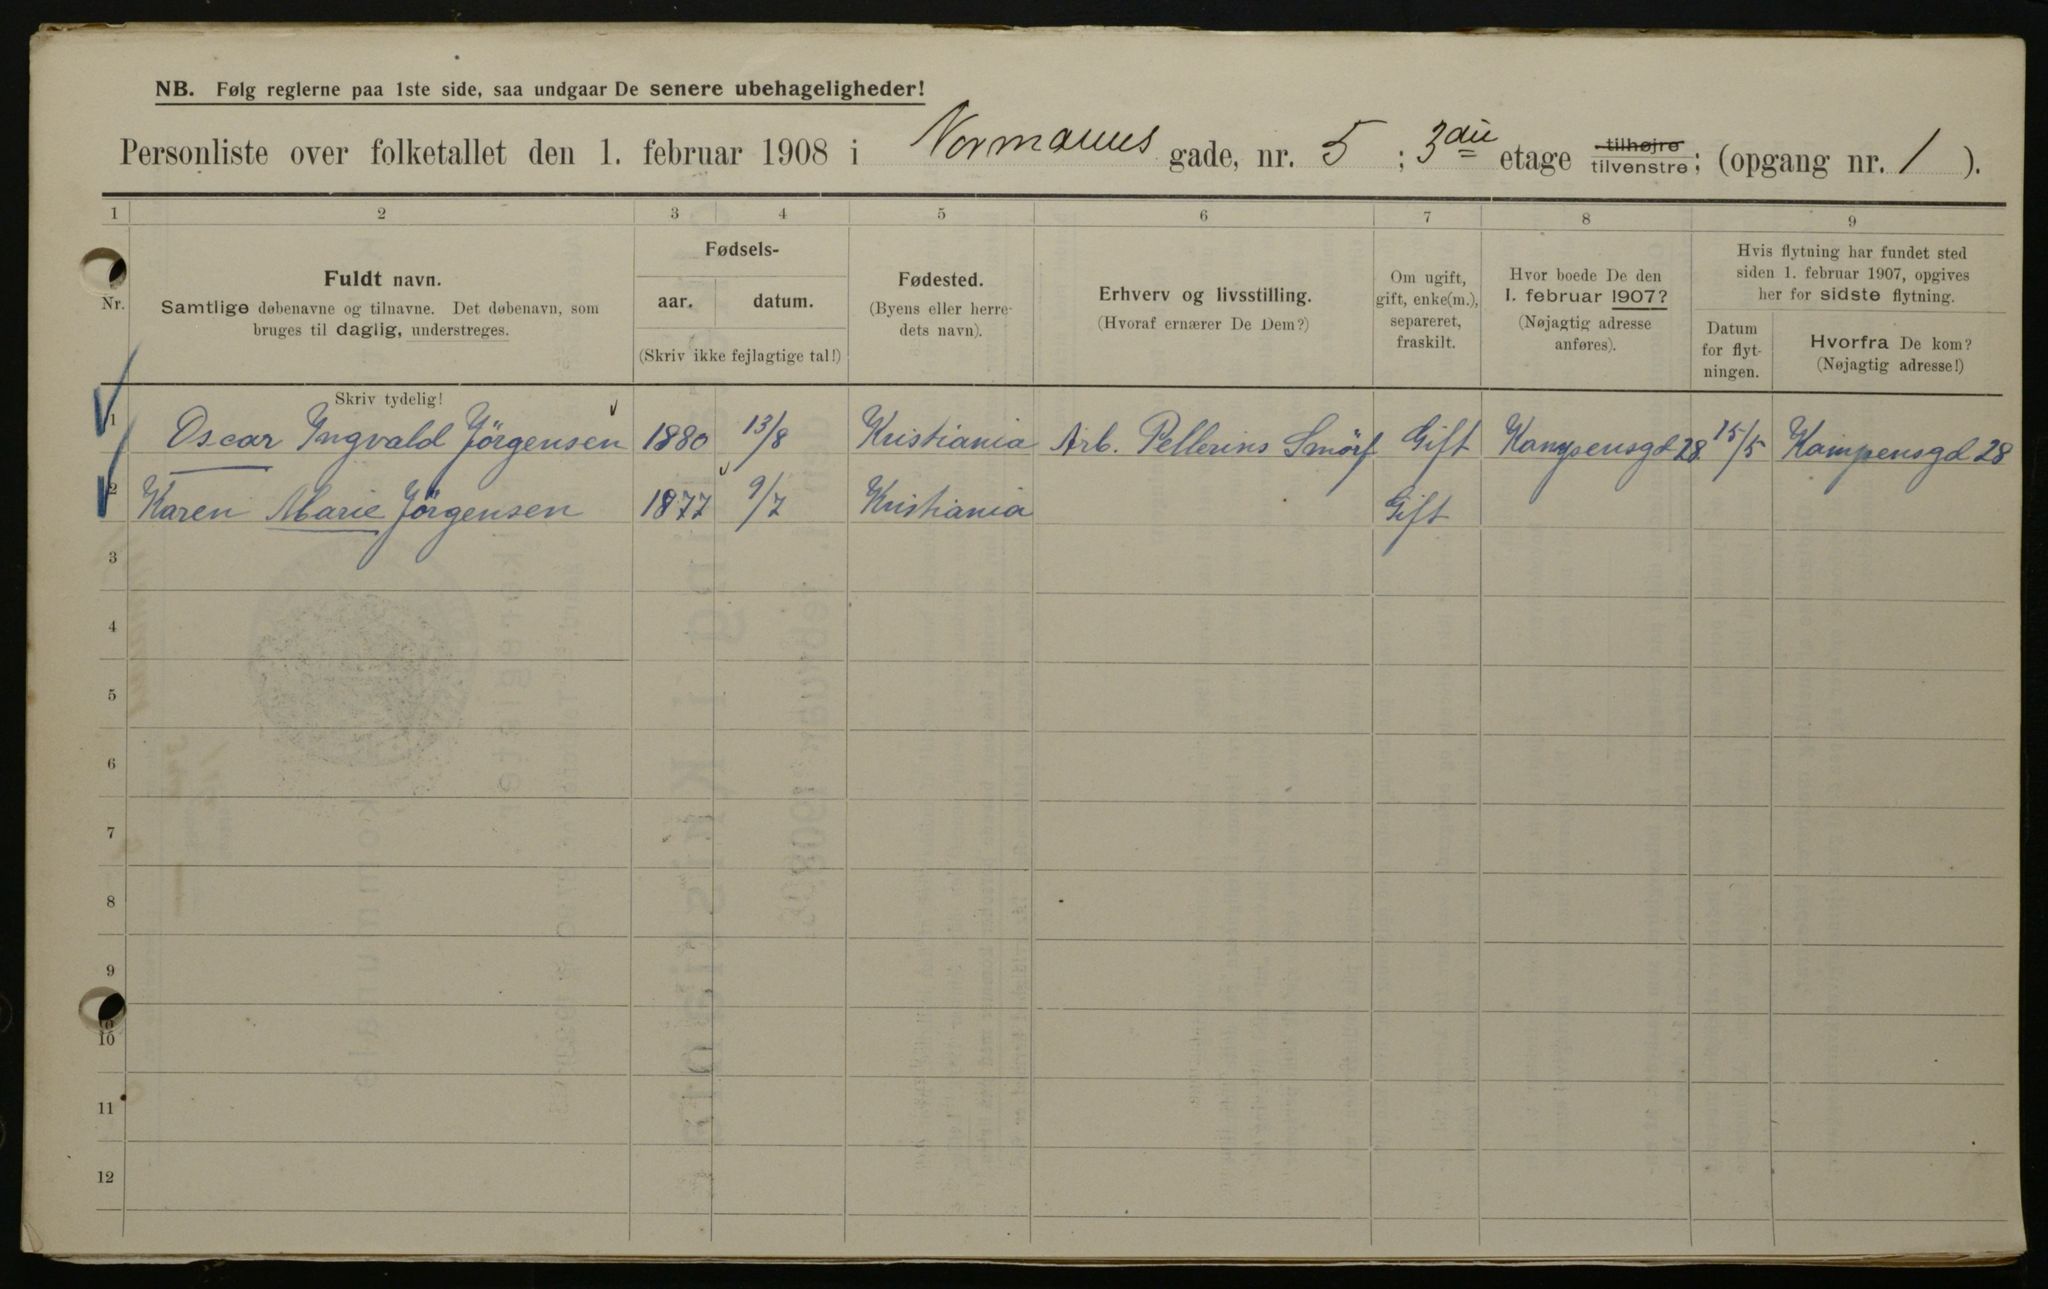 NB. Følg reglerne paa 1ste side, saa undgaar De senere ubehageligheder!
Personliste over folketallet den 1. februar 1908 i Normanns gade, nr. 5 ; 3die etage tilhøjre tilvenstre; (opgang nr. 1 ).
1 2 3 4 5 6 7 8 9
Nr.
Fuldt navn.
Samtlige døbenavne og tilnavne. Det døbenavn, som
bruges til daglig, understreges.
Fødsels-
aar. datum.
(Skriv ikke fejlagtige tal!)
Fødested.
(Byens eller herre-
dets navn).
Erhverv og livsstilling.
(Hvoraf ernærer De Dem?)
Om ugift,
gift, enke(m.),
separeret,
fraskilt.
Hvor boede De den
1. februar 1907?
(Nøjagtig adresse
anføres).
Hvis flytning har fundet sted
siden 1. februar 1907, opgives
her for sidste flytning.
Datum
for flyt-
ningen.
Hvorfra De kom?
(Nøjagtig adresse!)
Skriv tydelig!
1 Oscar Ingvald Jörgensen 1880 13/8 Kristiania Arb. Pellerins Smörf Gift Kampensgd 28. 15/5 Kampensgd 28
2 Karen Marie Jörgensen 1877 9/7 Kristiania Gift
3
4
5
6
7
8
9
10
11
12